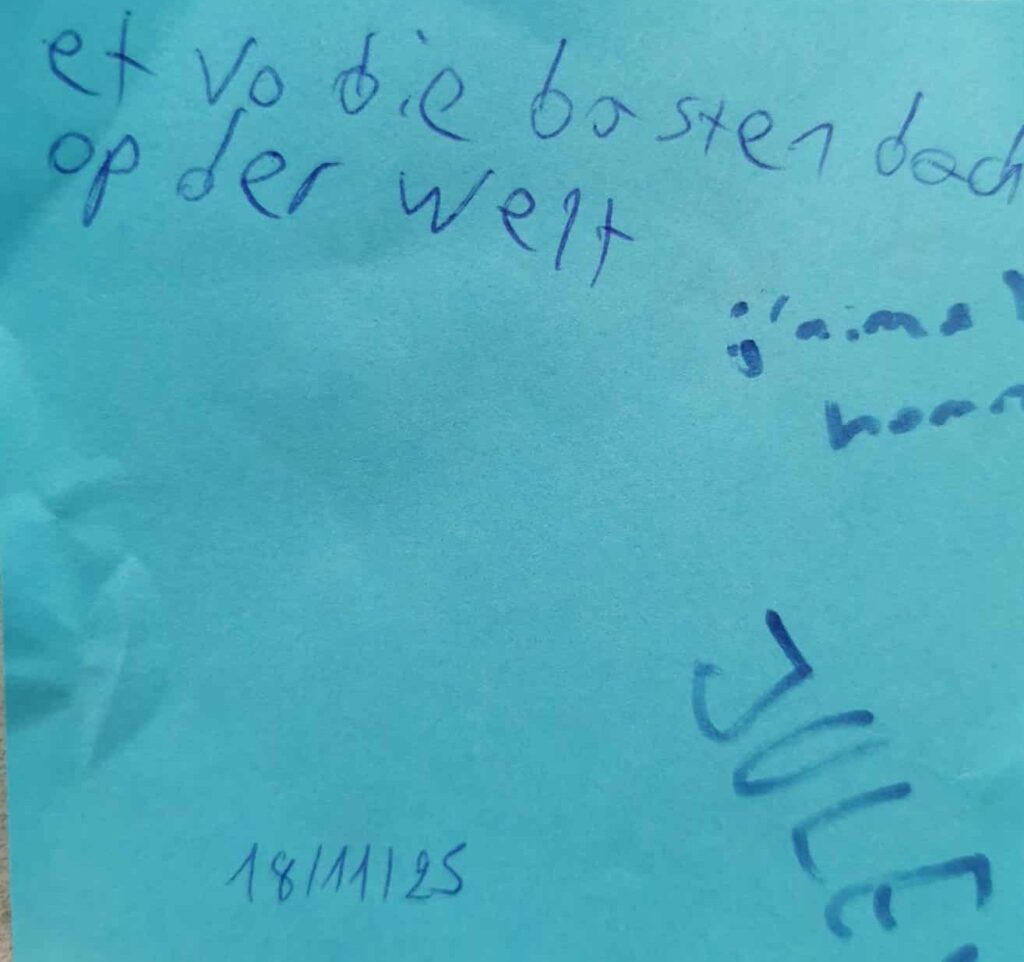 et vo die basten dach
op der welt
j'aime
JULE
18/11/25